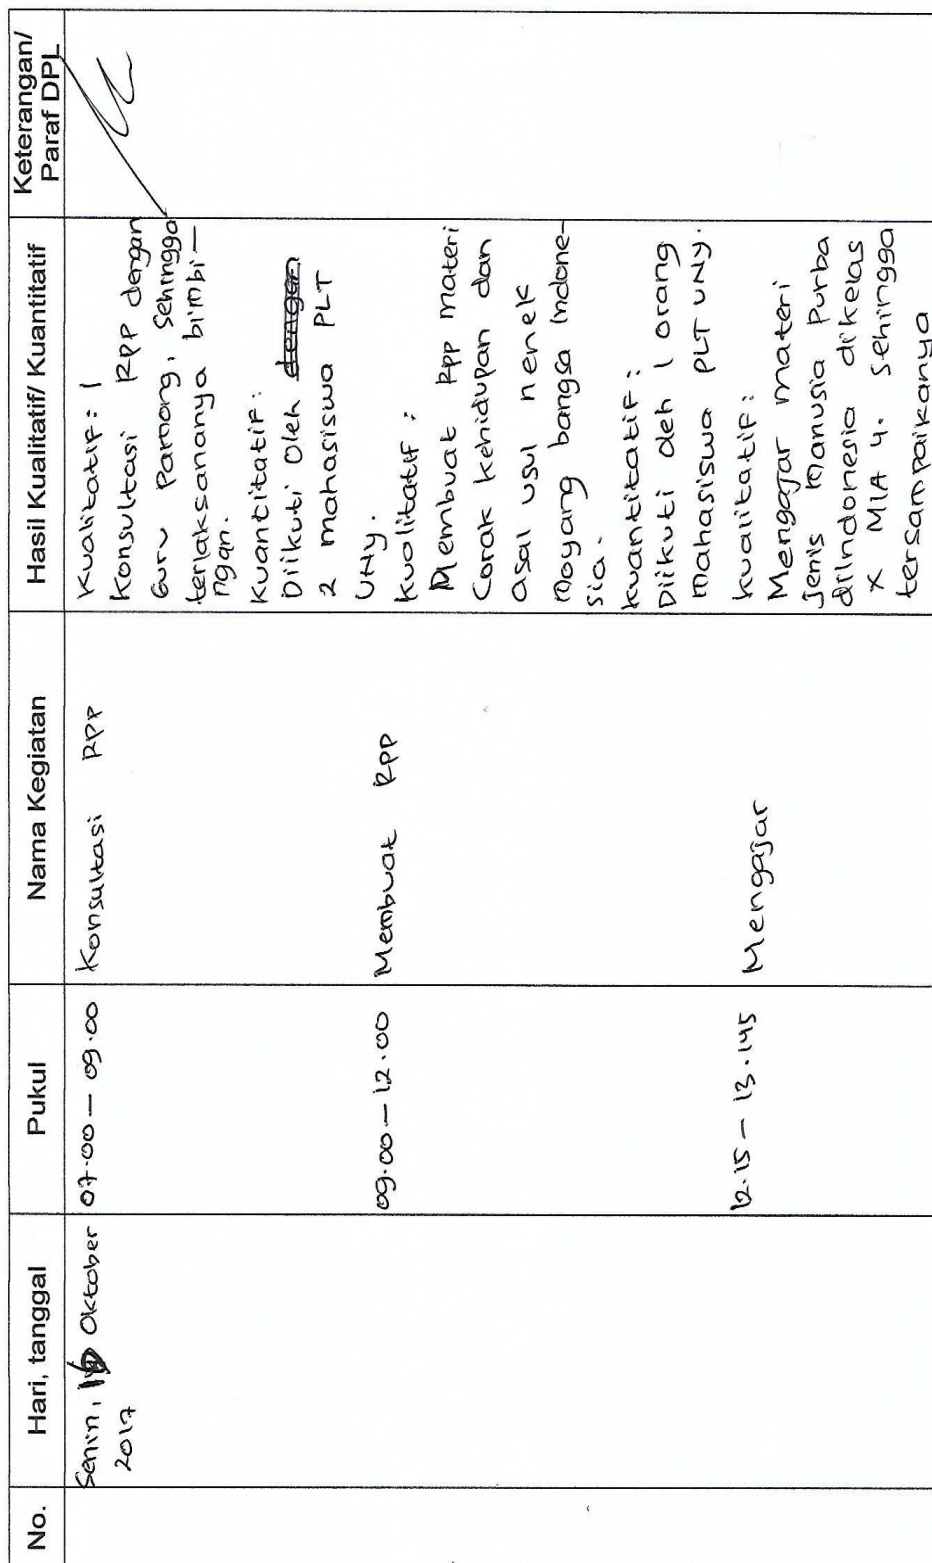 No.
Hari, tanggal
Pukul
Nama Kegiatan
Hasil Kualitatif/ Kuantitatif
Keterangan/
Paraf DPL
Senin, 16 Oktober
2017
07.00 – 09.00
Konsultasi RPP
Kualitatif :
Konsultasi RPP dengan
Guru Pamong, sehingga
terlaksananya bimbi –
ngan.
Kuantitatif :
Diikuti Oleh dengan
2 mahasiswa PLT
UNY.
09.00 – 12.00
Membuat RPP
Kualitatif :
Membuat RPP materi
Corak kehidupan dan
asal usul nenek
moyang bangsa Indone-
sia.
Kuantitatif :
Diikuti oleh 1 orang
mahasiswa PLT UNY.
12.15 – 13.145
Mengajar
kualitatif :
Mengajar materi
Jenis Manusia Purba
diIndonesia dikelas
X MIA 4. Sehingga
tersampaikanya